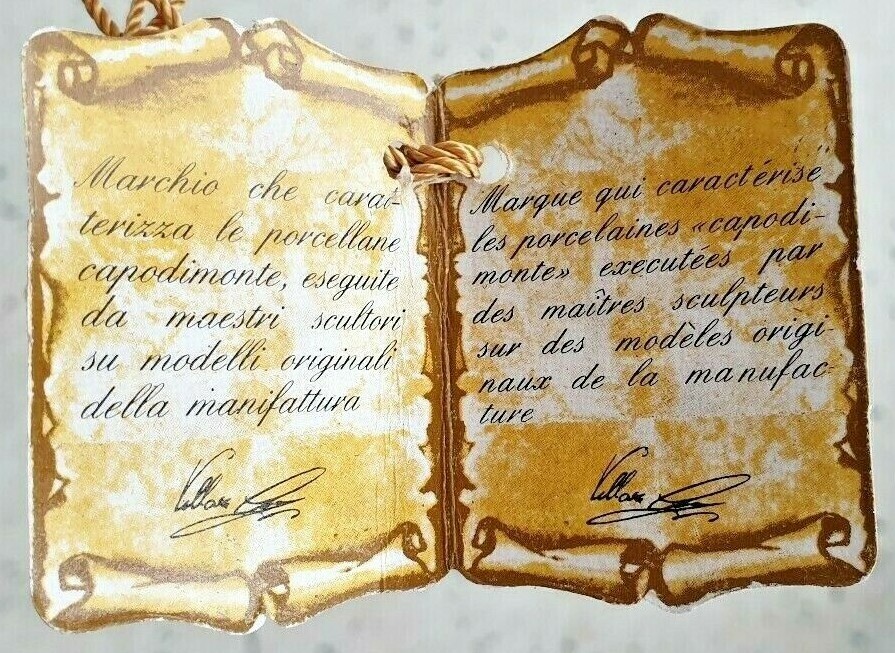 Marchio che carat-
terizza le porcellane
capodimonte, eseguite
da maestri scultori
su modelli originali
della manifattura
Marque qui caractérise
les porcelaines «capodi-
monte» executées par
des maîtres sculpteurs
sur des modèles origi-
naux de la manufac-
ture